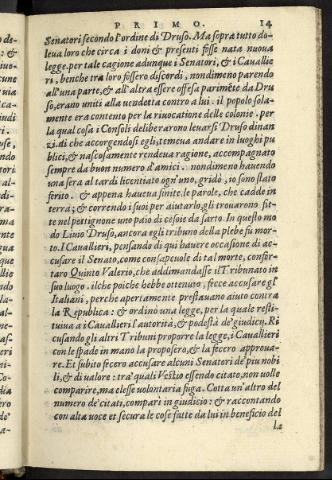 PRIMO. 14
Senatori secondo l'ordine di Druso. Ma sopra tutto do-
leua loro che circa i doni & presenti fosse nata nuova
legge. per tale cagione adunque i Senatori, & i Cauallie
ri, benche tra loro fossero discordi, nondimeno parendo
all'una parte, & all'altra essere offesa parimēte da Dru
so, erano uniti alla uendetta contro a lui. il popolo sola-
mente era contento per la riuocatione delle colonie. per
la qual cosa i Consoli deliberarono leuarsi Druso dinan
zi. di che accorgendosi egli, temeua andare in luoghi pu
blici, & nascosamente rendeua ragione, accompagnato
sempre da buon numero d'amici. nondimeno hauendo
una sera al tardi licentiato ogn'uno, gridò, io sono stato
ferito. & appena haueua finite le parole, che cadde in
terra; & correndo i suoi per aiutarlo, gli trouarono fit-
te nel pettignone uno paio di cesoie da sarto. In questo mo
do Liuio Druso, ancora egli tribuno della plebe fu mor-
to. I Cauallieri, pensando di qui hauere occasione di ac-
cusare il Senato, come consapeuole di tal morte, confor-
taro Quinto Valerio, che addimandasse il Tribunato in
suo luogo. il che poiche hebbe ottenuto, fece accusare gl'
Italiani, perche apertamente prestauano aiuto contra
la Republica: & ordinò una legge, per la quale resti-
tuiua a i Cauallieri l'autorità, & podestà de' giudicij. Ri
cusando gli altri Tribuni proporre la legge, i Cauallieri
con le spade in mano la proposero, & la fecero approua-
re. Et subito fecero accusare alcuni Senatori de' piu nobi
li, & di ualore: tra' quali Vestio essendo citato, non uolle
comparire, ma elesse uolontaria fuga. Cotta un'altro del
numero de' citati, comparì in giudicio: & raccontando
con alta uoce et secura le cose fatte da lui in beneficio del
la